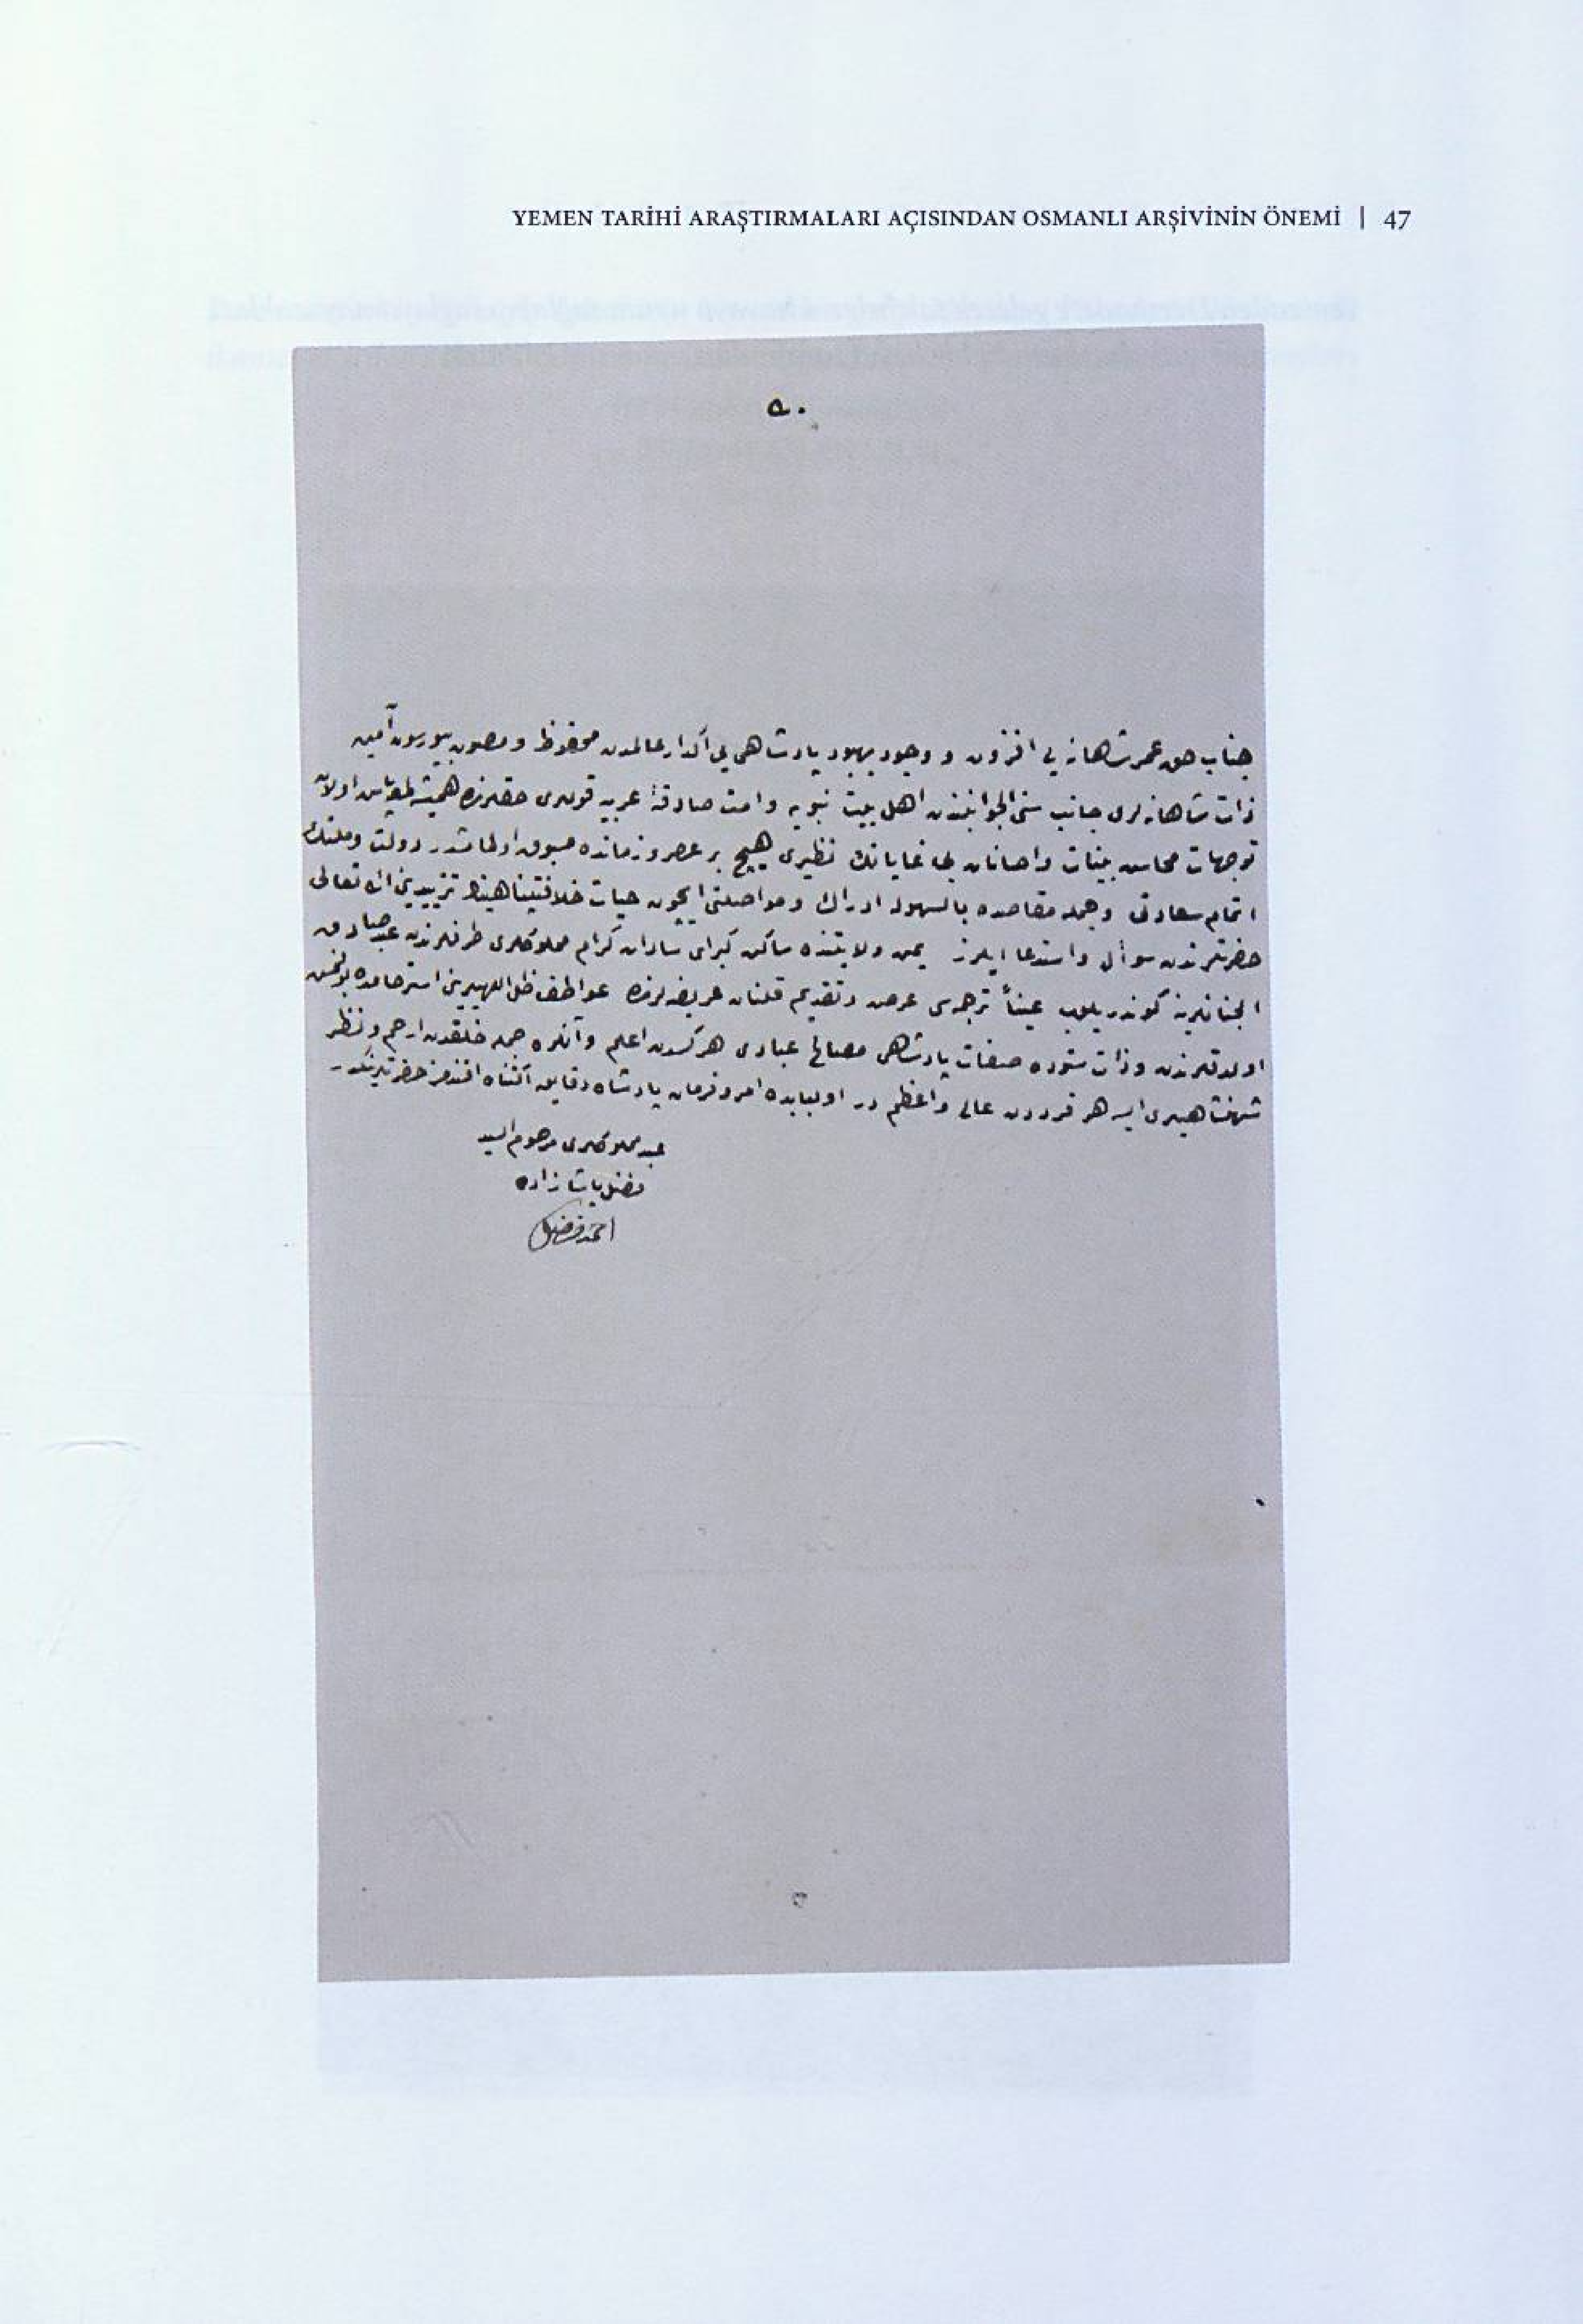 YEMEN TARİHİ ARAŞTIRMALARI AÇISINDAN OSMANLI ARŞİVİNİN ÖNEMİ | 47
جناب حق عمر شاهانه یی افزون و وجود بهبود پادشاهی یی اكدار عالمدن محفوظ و مصون بیورسون آمین
ذات شاهانه لری جانب سنی الجوانبندن اهل بیت نبویه و امت صادقهٔ عربیه قوللری حقلرنده همیشه اولان
توجهات محاسن بینات و احسانات بی غایاتك نظیری هیچ بر عصر و زمانده مسبوق اولمامشدر دولت و ملتك
اتمام سعادتی و جمله مقاصده بالسهوله ادراك و مواصلتی ایچون حیات خلافتپناهینك تزییدینی الله تعالی
حضرتلرندن سؤال و استدعا ایلرز یمن ولایتنده ساكن كبرای سادات كرام مملوكلری طرفلرندن عبد صادق
الجنانلرینه كوندریلوب عیناً ترجمه سی عرض و تقدیم قلنان عریضه لرنده عواطف ظل اللهیلرینی استرحامده بولنمش
اولدقلرندن و ذات ستوده صفات پادشاهی مصالح عبادی هركسدن اعلم و آنلره جمله خلقدن ارحم و نظر
شهنشاهیلری ایسه هر فرددن عالی و اعظم در اولبابده امر و فرمان پادشاه دقایق آشناه افندمز حضرتلرینكدر
عبد مملوكلری مرحوم السید
فضل پاشا زاده
احمد فضل